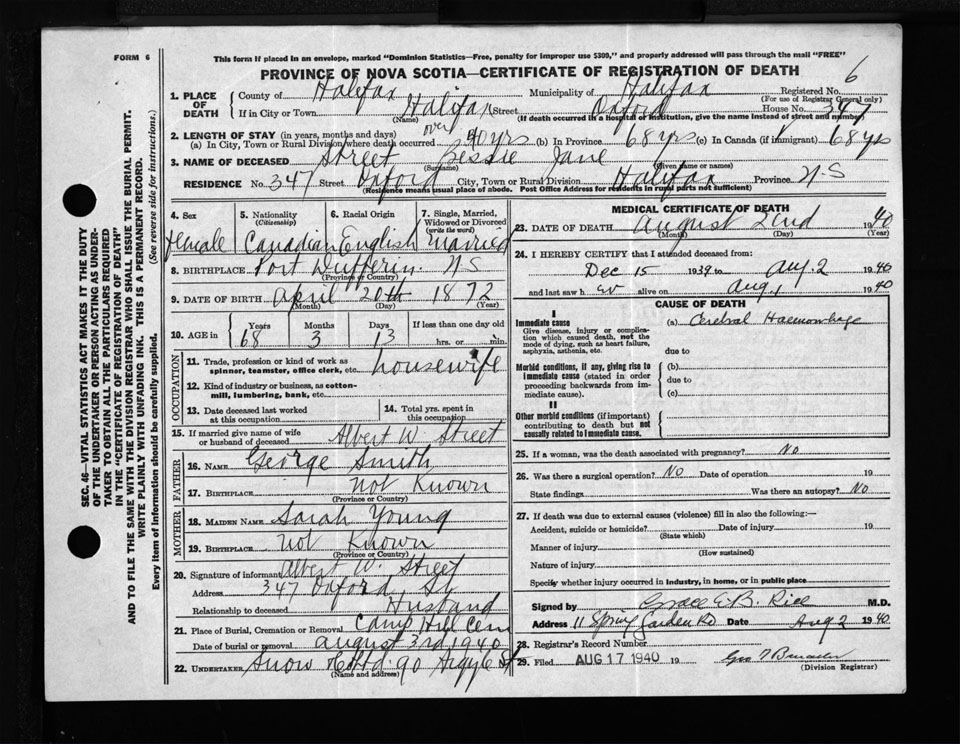 FORM 6
This form if placed in an envelope, marked "Dominion Statistics—Free, penalty for improper use $300," and properly addressed will pass through the mail "FREE"
PROVINCE OF NOVA SCOTIA—CERTIFICATE OF REGISTRATION OF DEATH
6
1. PLACE OF DEATH
County of Halifax Municipality of Halifax Registered No.
(For use of Registrar General only)
If in City or Town Halifax Street Oxford House No. 347
(Name) (If death occurred in a hospital or institution, give the name instead of street and number)
2. LENGTH OF STAY (in years, months and days)
(a) In City, Town or Rural Division where death occurred over 40 yrs (b) In Province 68 yrs (c) In Canada (if immigrant) 68 yrs
3. NAME OF DECEASED Street Bessie Jane
(Surname) (Given name or names)
RESIDENCE No. 347 Street Oxford City, Town or Rural Division Halifax Province N-S
(Residence means usual place of abode. Post Office Address for residents in rural parts not sufficient)
4. Sex 5. Nationality (Citizenship) 6. Racial Origin 7. Single, Married, Widowed or Divorced (write the word)
Female Canadian English Married
8. BIRTHPLACE Port Dufferin N S
(Province or Country)
9. DATE OF BIRTH April 20th 1872
(Month) (Day) (Year)
10. AGE in Years Months Days If less than one day old
68 3 13 hrs. or min.
OCCUPATION
11. Trade, profession or kind of work as spinner, teamster, office clerk, etc. housewife
12. Kind of industry or business, as cotton-mill, lumbering, bank, etc.
13. Date deceased last worked at this occupation
14. Total yrs. spent in this occupation
15. If married give name of wife or husband of deceased Albert W. Street
FATHER
16. NAME George Smith
17. BIRTHPLACE not Known
(Province or Country)
MOTHER
18. MAIDEN NAME Sarah Young
19. BIRTHPLACE not Known
(Province or Country)
20. Signature of informant Albert W. Street
Address 347 Oxford St
Relationship to deceased Husband
21. Place of Burial, Cremation or Removal Camp Hill Cem
Date of burial or removal august 3rd 1940
22. UNDERTAKER Snow & Co Ltd 90 Argyle St
(Name and address)
MEDICAL CERTIFICATE OF DEATH
23. DATE OF DEATH August 2nd 1940
(Month) (Day) (Year)
24. I HEREBY CERTIFY that I attended deceased from:
Dec 15 1939 to Aug. 2 1940
and last saw h er alive on Aug. 1 1940
CAUSE OF DEATH
I
Immediate cause (a) Cerebral Haemorrhage
Give disease, injury or complication which caused death, not the mode of dying, such as heart failure, asphyxia, asthenia, etc.
due to
Morbid conditions, if any, giving rise to immediate cause (stated in order proceeding backwards from immediate cause).
(b)
due to
(c)
II
Other morbid conditions (if important) contributing to death but not causally related to immediate cause.
25. If a woman, was the death associated with pregnancy? No
26. Was there a surgical operation? No Date of operation 19
State findings Was there an autopsy? No
27. If death was due to external causes (violence) fill in also the following:—
Accident, suicide or homicide? Date of injury 19
(State which)
Manner of injury
(How sustained)
Nature of injury
Specify whether injury occurred in industry, in home, or in public place
Signed by Grace E.B. Rice M.D.
Address 11 Spring Garden Rd Date Aug 2 1940
28. Registrar's Record Number
29. Filed AUG 17 1940 19
(Division Registrar)
SEC. 46—VITAL STATISTICS ACT MAKES IT THE DUTY
OF THE UNDERTAKER OR PERSON ACTING AS UNDER-
TAKER TO OBTAIN ALL THE PARTICULARS REQUIRED
IN THE "CERTIFICATE OF REGISTRATION OF DEATH"
AND TO FILE THE SAME WITH THE DIVISION REGISTRAR WHO SHALL ISSUE THE BURIAL PERMIT.
WRITE PLAINLY WITH UNFADING INK. THIS IS A PERMANENT RECORD.
Every item of information should be carefully supplied. (See reverse side for instructions.)